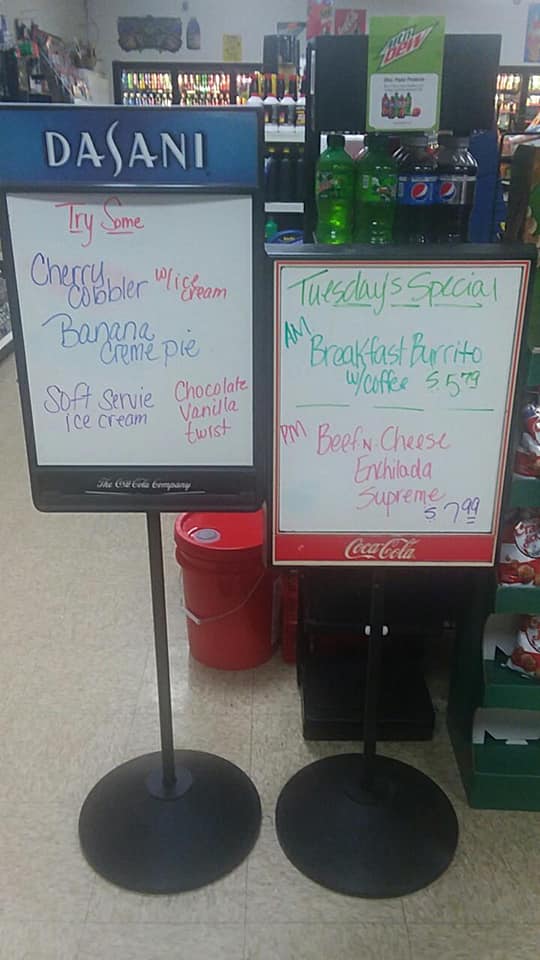 DASANI
Try Some
Cherry
cobbler w/ice
cream
Banana
creme pie
Soft Servie
ice cream
Chocolate
Vanilla
twist
The Coca-Cola Company
Mtn
Dew
Tuesday's Special
AM
Breakfast Burrito
w/coffee $5.79
PM
Beef N Cheese
Enchilada
Supreme
$7.99
Coca-Cola